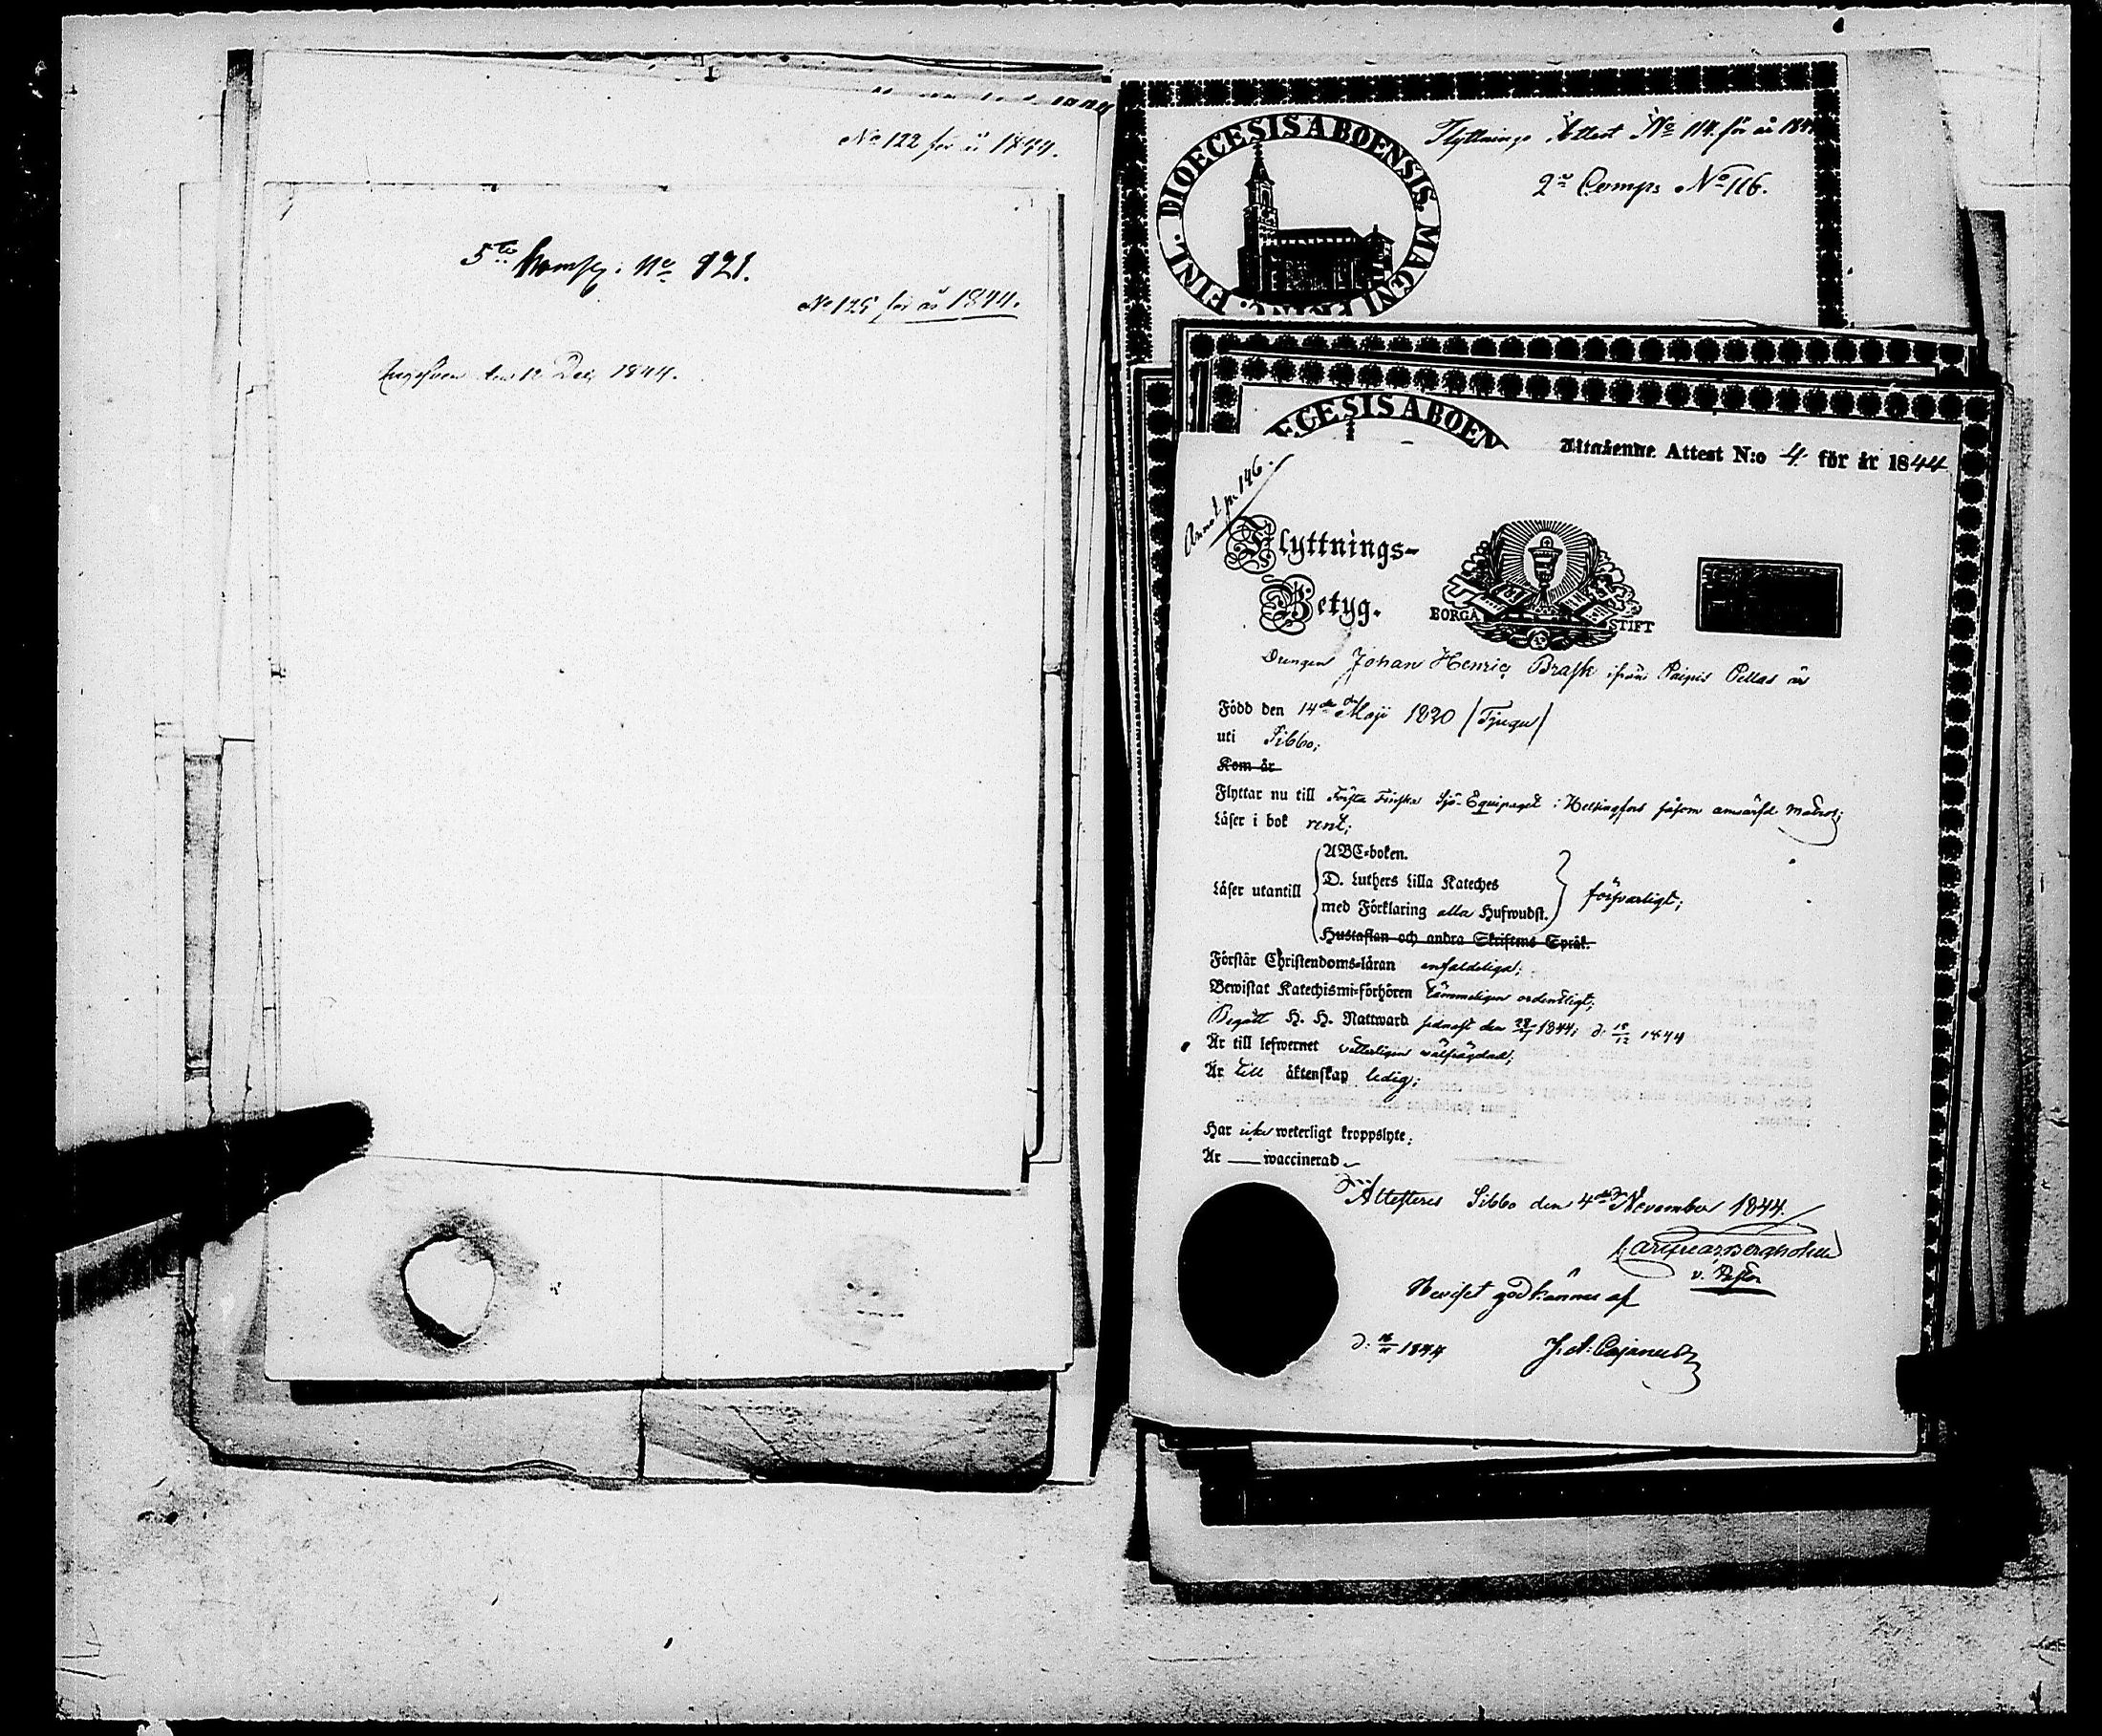 No 122 för år 1844.
5te Comp: No 121.
No 125 för år 1844.
den 12 Dec 1844.
DIOECESIS ABOENSIS. MAGNI PRINC. FINL.
Flyttnings Attest No 114. för år 1844
2a Comp: No 116.
ECESIS ABOEN
Utgående Attest N:o 4 för år 1844
Annot p. 146.
Flyttnings-
Betyg.
BORGÅ STIFT
Drengen Johan Henric Brask ifrån Paipis Pellas är
Född den 14de Maji 1820 /Tjugu/
uti Sibbo;
Kom år
Flyttar nu till Första Finska Sjö-Equipaget i Helsingfors såsom anvärfd Matros;
Läser i bok rent;
ABC-boken.
D. Luthers Lilla Kateches
Läser utantill
med Förklaring alla Hufwudst.
försvarligt;
Hustaflan och andra Skriftens Språk.
Förstår Christendoms-läran enfaldeligen;
Bewistat Katechismi-förhören tämmeligen ordentligt;
Begått H. H. Nattward sednast den 1844; d. 15/12 1844
Är till lefwernet vetterligen välfrägdad;
Är till äktenskap ledig;
Har icke weterligt kroppslyte;
Är — waccinerad
Attesteras Sibbo den 4de November 1844.
Bergholm
v. Pastor
Beviset godkännes af
d. 1844 J. A. Cajanus